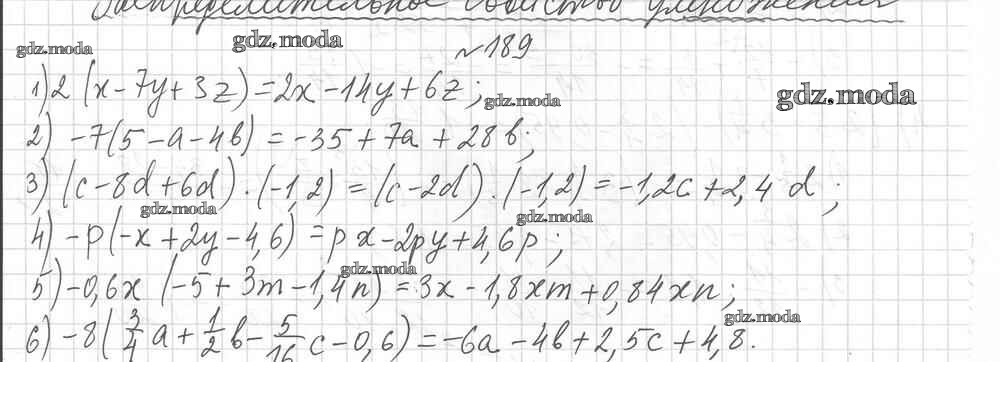 Распределительное свойство умножения
gdz.moda gdz.moda №189
1) 2 (x - 7y + 3z) = 2x - 14y + 6z; gdz.moda gdz.moda
2) -7(5 - a - 4b) = -35 + 7a + 28b;
3) (c - 8d + 6d) · (-1,2) = (c - 2d) · (-1,2) = -1,2c + 2,4 d;
gdz.moda gdz.moda
4) -p(-x + 2y - 4,6) = px - 2py + 4,6p;
gdz.moda
5) -0,6x (-5 + 3m - 1,4n) = 3x - 1,8xm + 0,84xn;
gdz.moda
6) -8( 3/4 a + 1/2 b - 5/16 c - 0,6) = -6a - 4b + 2,5c + 4,8.